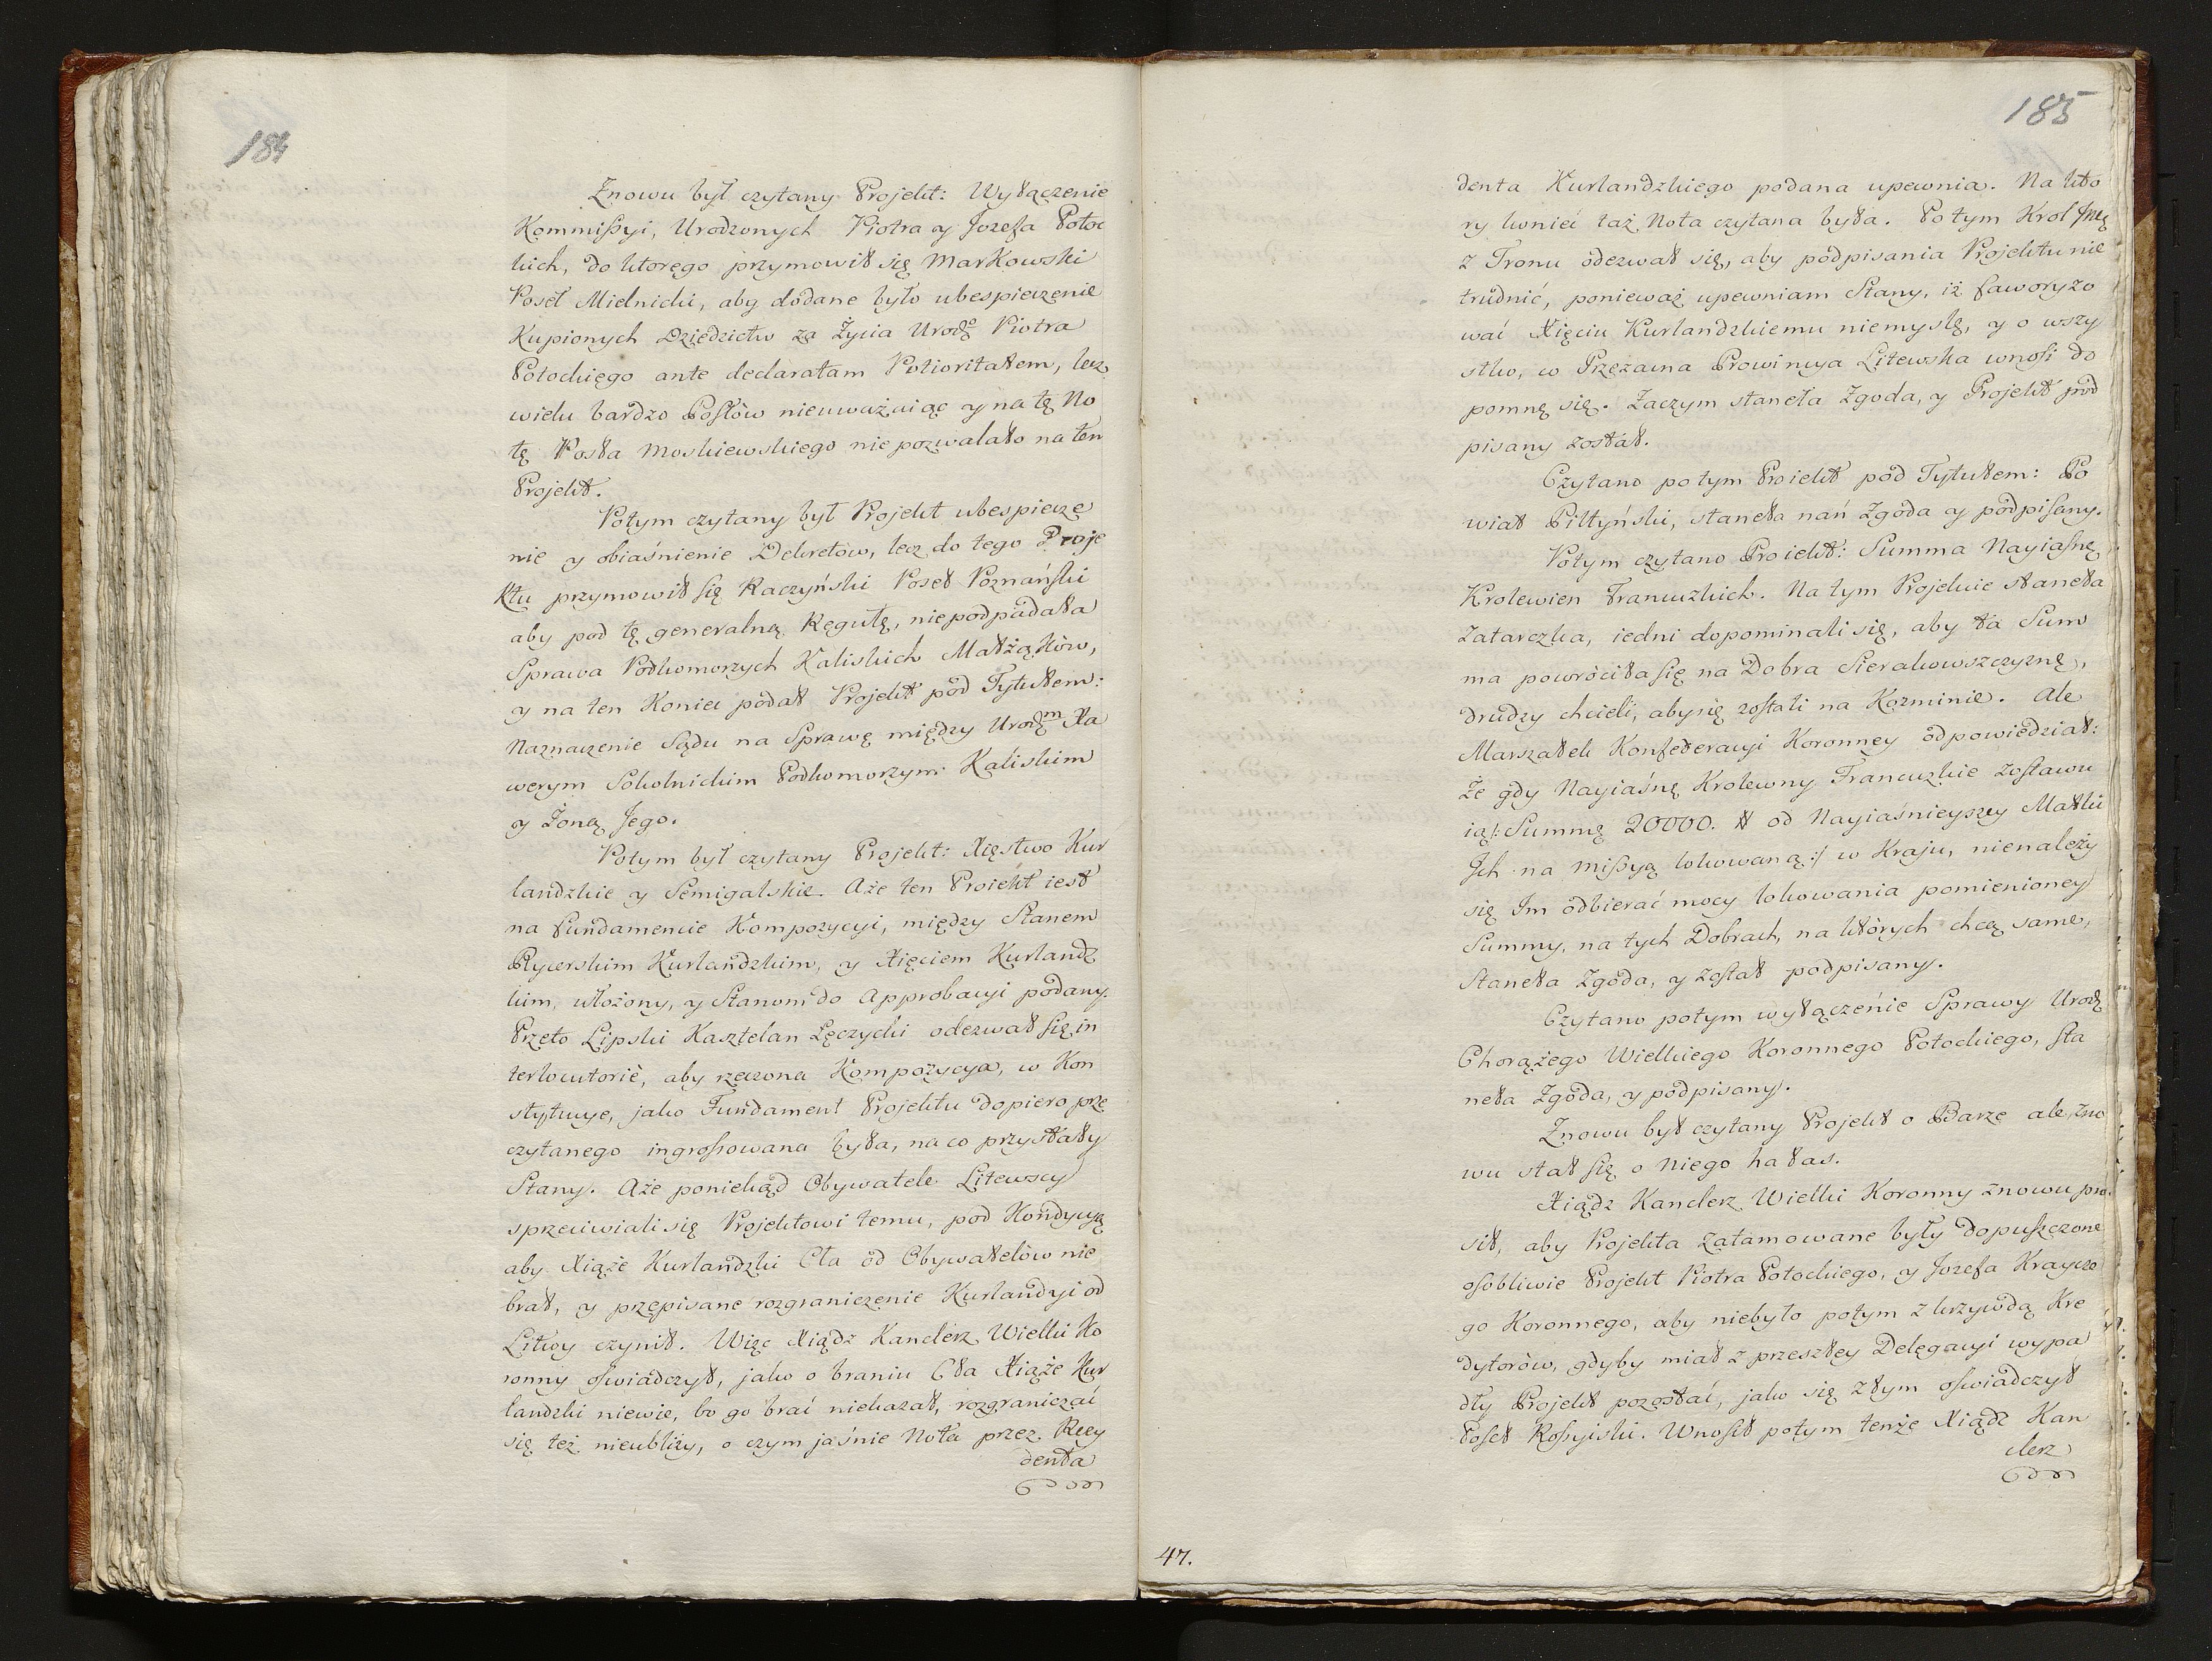 184
Znowu był czytany Projekt: Wyłączenie
Kommissyi, Urodzonych Piotra y Jozefa Potoc
kich, do ktorego przymowił się Markowski
Poseł Mielnicki, aby dodane było ubespieczenie
Kupionych Dziedzictw za Życia Urodzo Piotra
Potockiego ante declaratam Potioritatem, lecz
wielu bardzo Posłów nieuważaiąc y na tę No
tę Posła Moskiewskiego nie pozwalało na ten
Projekt.
Potym czytany był Projekt ubespiecze
nie y obiaśnienie Dekretow, lecz do tego Proje
ktu przymowił się Raczyński Poseł Poznański
aby pod tę generalną Regułę, niepodpadała
Sprawa Podkomorzych Kaliskich Małżąków,
y na ten Koniec podał Projekt pod Tytułem:
Naznaczenie Sądu na Sprawę między Urodzm Xa
werym Sokolnickim Podkomorzym Kaliskim
y Żoną Jego.
Potym był czytany Projekt: Xięstwo Kur
landzkie y Semigalskie. Aże ten Proiekt iest
na Fundamencie Kompozycyi, między Stanem
Rycerskim Kurlandzkim, y Xięciem Kurlandz
kim, ułożony, y Stanom do Approbacyi podany.
Przeto Lipski Kasztelan Łęczycki odezwał się in
terlocutoriè, aby rzeczona Kompozycya, w Kon
stytucye, jako Fundament Projektu dopiero prze
czytanego ingrossowana była, na co przystały
Stany. Aże poniekąd Obywatele Litewscy
sprzeciwiali się Projektowi temu, pod Kondycyą
aby Xiąże Kurlandzki Cła od Obywatelów nie
brał, y przepisane rozgraniczenie Kurlandyi od
Litwy czynił. Więc Xiądz Kanclerz Wielki Ko
ronny oswiadczył, jako o braniu Cła Xiąże Kur
landzki niewie, bo go brać niekazał, rozgraniczać
się też nieubliży, o czym jaśnie Nota przez Rezy
denta
185
denta Kurlandzkiego podana upewnia. Na kto
ry koniec taż Nota czytana była. Potym Krol Jmę
z Tronu odezwał się, aby podpisania Projektu nie
trudnić, ponieważ upewniam Stany, iż faworyzo
wać Xięciu Kurlandzkiemu niemyslę, y o wszy
stko, w Przezacna Prowincya Litewska wnosi do
pomnę się. Zaczym staneła Zgoda, y Projekt pod
pisany został.
Czytano potym Proiekt pod Tytułem: Po
wiat Piltyński, staneła nań Zgoda y podpisany.
Potym czytano Proiekt: Summa Nayiasnę
Krolewien Francuzkich. Na tym Projekcie staneła
Zatarczka, iedni dopominali się, aby ta Sum
ma powróciła się na Dobra Sierakowszczyznę,
drudzy chcieli, aby się zostali na Kozminie. Ale
Marszałek Konfederacyi Koronney odpowiedział:
Że gdy Nayiaśnę Krolewny Francuzkie zostawu
ią /: Summę 20000. # od Nayiaśnieyszey Matki
Ich na missyą lokowaną :/ w Kraju, nienależy
się Im odbierać mocy lokowania pomienioney
Summy, na tych Dobrach, na których chcą same,
Staneła Zgoda, y został podpisany.
Czytano potym wyłączenie Sprawy Urodz
Chorążego Wielkiego Koronnego Potockiego, sta
neła Zgoda, y podpisany.
Znowu był czytany Projekt o Barze ale zno
wu stał się o niego hałas.
Xiądz Kanclerz Wielki Koronny znowu pro
sił, aby Projekta zatamowane były dopuszczone
osobliwie Projekt Piotra Potockiego, y Jozefa Krayczo
go Koronnego, aby niebyło potym z krzywdą Kre
dytorów, gdyby miał z przeszłey Delegacyi wypa
dły Projekt pozostać, jako się z tym oświadczył
Poseł Rossyiski. Wnosił potym tenże Xiądz Kan
clerz
47.